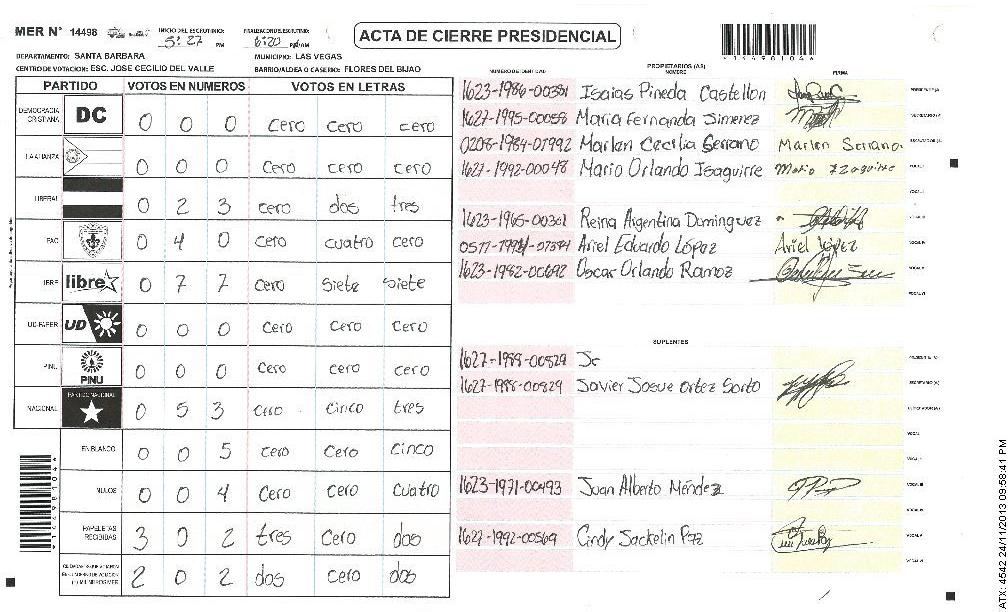 MER N° 14498 INICIO DEL ESCRUTINIO: 5:27 PM FINALIZACION DEL ESCRUTINIO: 6:20 PM/AM
ACTA DE CIERRE PRESIDENCIAL
*144981046*
DEPARTAMENTO: SANTA BARBARA MUNICIPIO: LAS VEGAS
CENTRO DE VOTACION: ESC. JOSE CECILIO DEL VALLE BARRIO/ALDEA O CASERIO: FLORES DEL BIJAO
PARTIDO VOTOS EN NUMEROS VOTOS EN LETRAS
DEMOCRACIA CRISTIANA DC 0 0 0 cero cero cero
LA ALIANZA 0 0 0 cero cero cero
LIBERAL 0 2 3 cero dos tres
PAC 0 4 0 cero cuatro cero
LIBRE libre 0 7 7 cero siete siete
UD-FAPER UD 0 0 0 Cero Cero Cero
PINU PINU 0 0 0 cero cero cero
NACIONAL PARTIDO NACIONAL 0 5 3 cero cinco tres
EN BLANCO 0 0 5 cero cero cinco
NULOS 0 0 4 cero cero cuatro
PAPELETAS RECIBIDAS 3 0 2 tres cero dos
2 0 2 dos cero dos
PROPIETARIOS (AS)
NUMERO DE IDENTIDAD NOMBRE FIRMA
1623-1986-00351 Isaias Pineda Castellon PRESIDENTE (A)
1627-1995-00058 Maria Fernanda Jimenez SECRETARIO (A)
0208-1984-01992 Marlen Cecilia Serrano Marlen Serrano. ESCRUTADOR (A)
1627-1992-00048 Mario Orlando Isaguirre Mario Izaguirre VOCAL I
VOCAL II
1623-1965-00301 Reina Argentina Dominguez VOCAL III
Ariel Eduardo López Ariel López VOCAL IV
1623-1982-00692 Oscar Orlando Ramoz VOCAL V
VOCAL VI
SUPLENTES
1627-1988-00829 Jo PRESIDENTE (A)
1627-1988-00829 Javier Josue Ortez Sorto SECRETARIO (A)
ESCRUTADOR (A)
VOCAL I
VOCAL II
1623-1971-00493 Juan Alberto Méndez VOCAL III
VOCAL IV
1627-1992-00569 Cindy Jackelin Paz VOCAL V
VOCAL VI
*144981046*
ATX: 4542 24/11/2013 09:58:41 PM